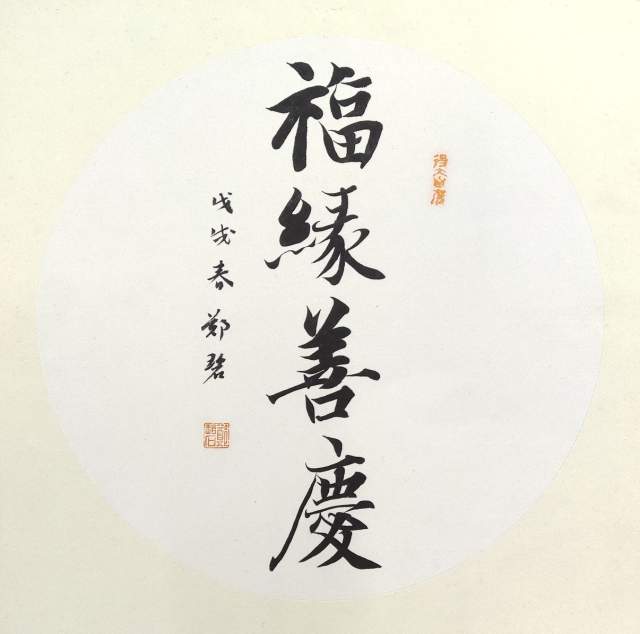 福緣善慶
戊戌春 鄭碧